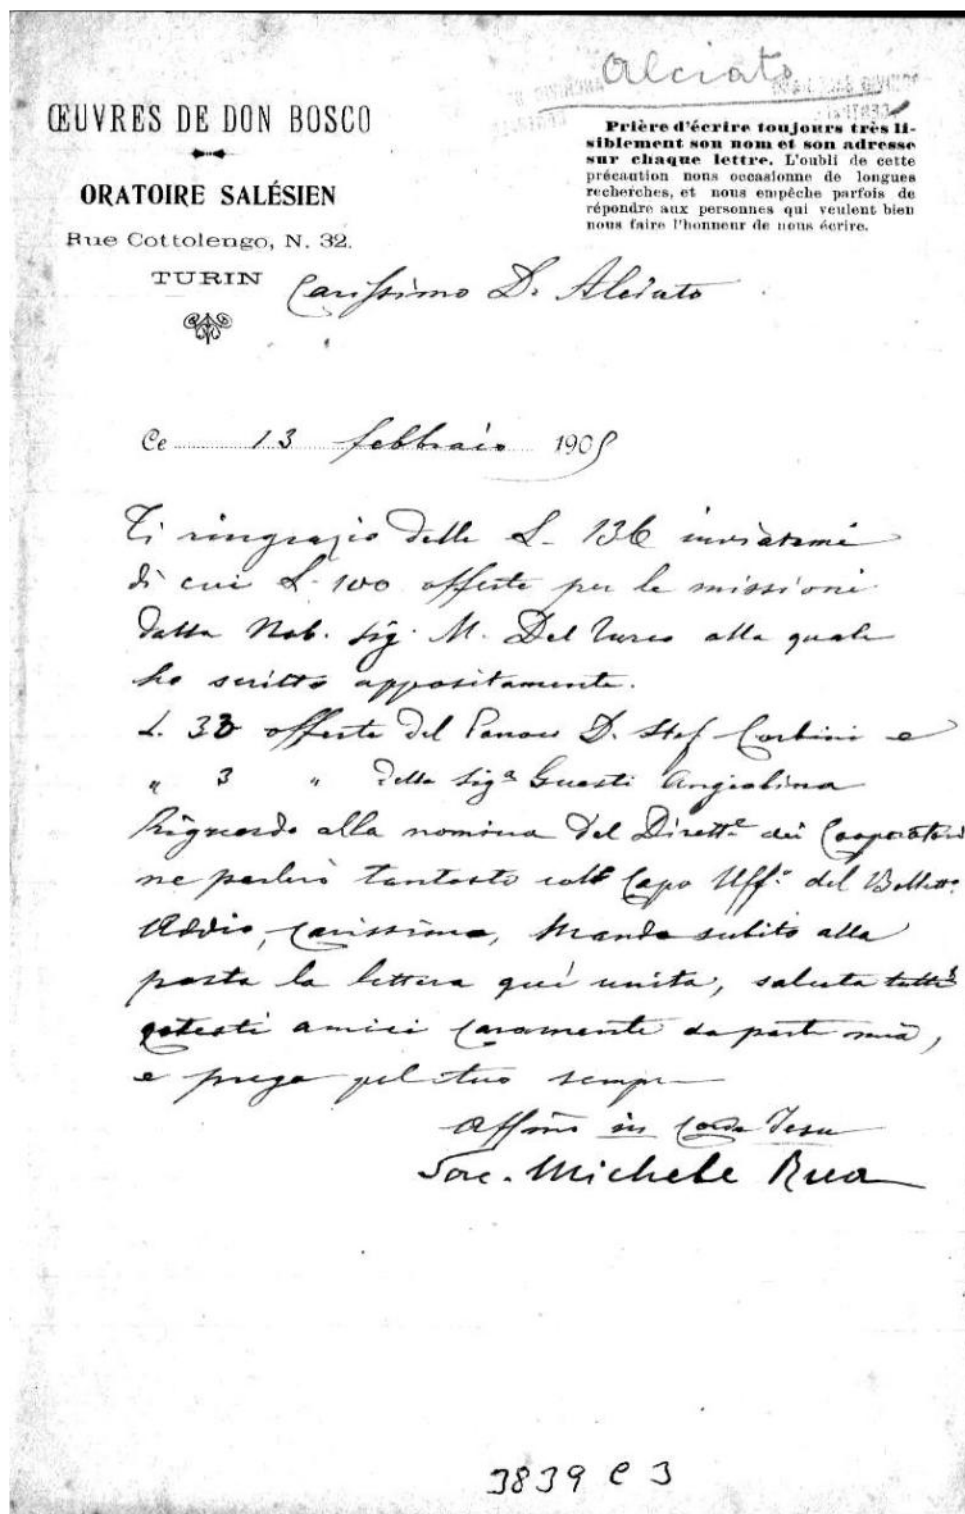 Alciato
ŒUVRES DE DON BOSCO
ORATOIRE SALÉSIEN
Rue Cottolengo, N. 32.
TURIN
Prière d'écrire toujours très li-
siblement son nom et son adresse
sur chaque lettre. L'oubli de cette
précaution nous occasionne de longues
recherches, et nous empêche parfois de
répondre aux personnes qui veulent bien
nous faire l'honneur de nous écrire.
Carissimo D. Alciato
Ce 13 febbraio 1905
Ti ringrazio delle L. 136 inviatemi
di cui L. 100 offerte per le missioni
dalla Nob. Sig. M. Del Turco alla quale
ho scritto appositamente.
L. 33 offerte del D. Stef. Corbini e
" 3 " della Sigª Guasti Angiolina
Riguardo alla nomina del Dirett.e dei Cooperatori
ne parlerò tantosto col Capo Uff.o del Bollett.o
Addio, carissimo, Manda subito alla
posta la lettera quì unita, saluta tutti
cotesti amici caramente da parte mia,
e prega pel tuo sempre
Affmo in Corde Jesu
Sac. Michele Rua
3839 C 3